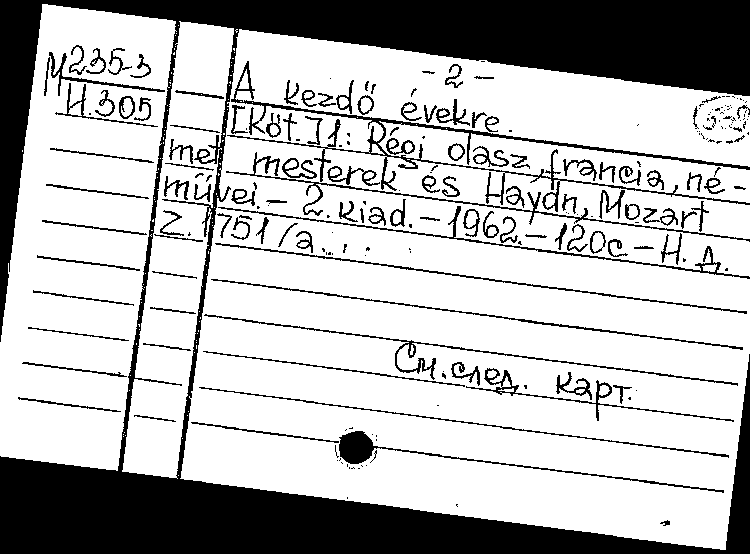 - 2 -
М 235-3
Н.305
A kezdő évekre.
[Köt.] 1: Régi olasz, francia, né-
met mesterek és Haydn, Mozart
művei. – 2. kiad. – 1962. – 120 c – Н. д.
Z. 1751/a...
См. след. карт.